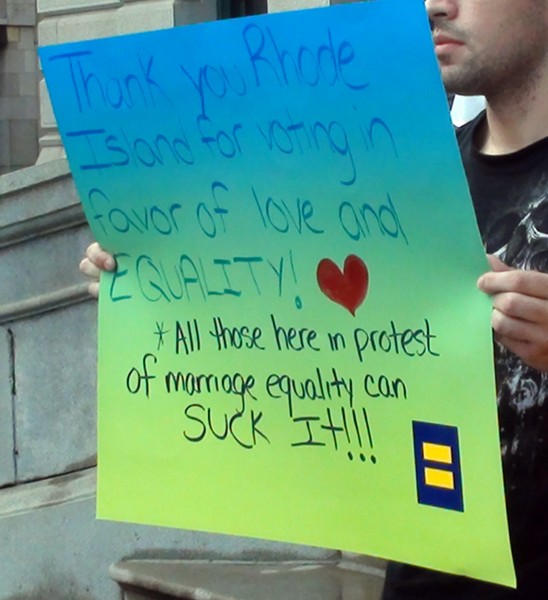 Thank you Rhode
Island for voting in
favor of love and
EQUALITY!
*All those here in protest
of marriage equality can
SUCK It!!!